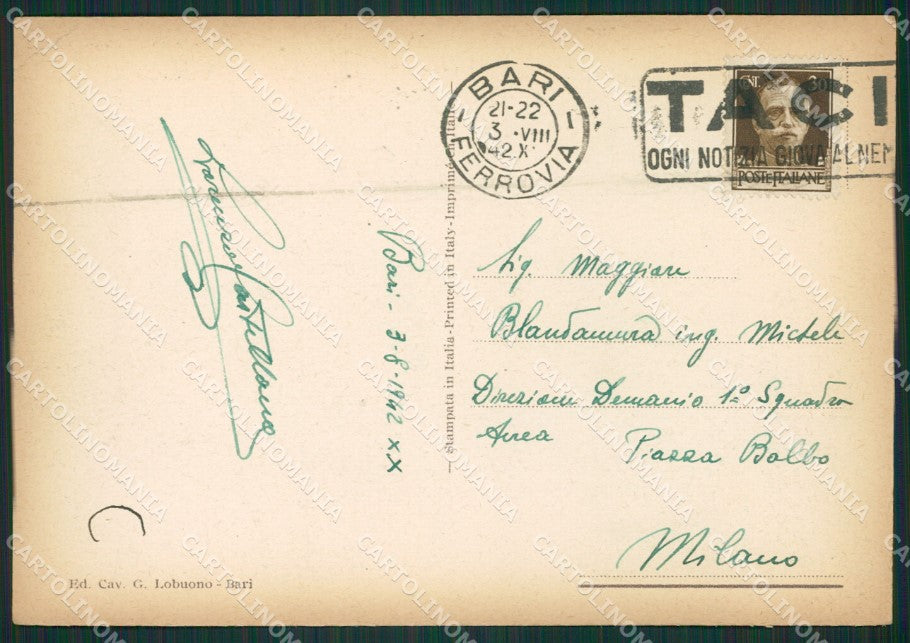 BARI
21-22
3 . VIII
42 X
FERROVIA
TACI
OGNI NOTIZIA GIOVA AL NEM
POSTE ITALIANE
Sig. Maggiore
Blandamura ing. Michele
Direzione Demanio 1ª Squadra
Aerea Piazza Balbo
Milano
Bari - 3-8-1942 XX
Stampata in Italia - Printed in Italy - Imprimé en Italie
C
Ed. Cav. G. Lobuono - Bari
CARTOLINOMANIA